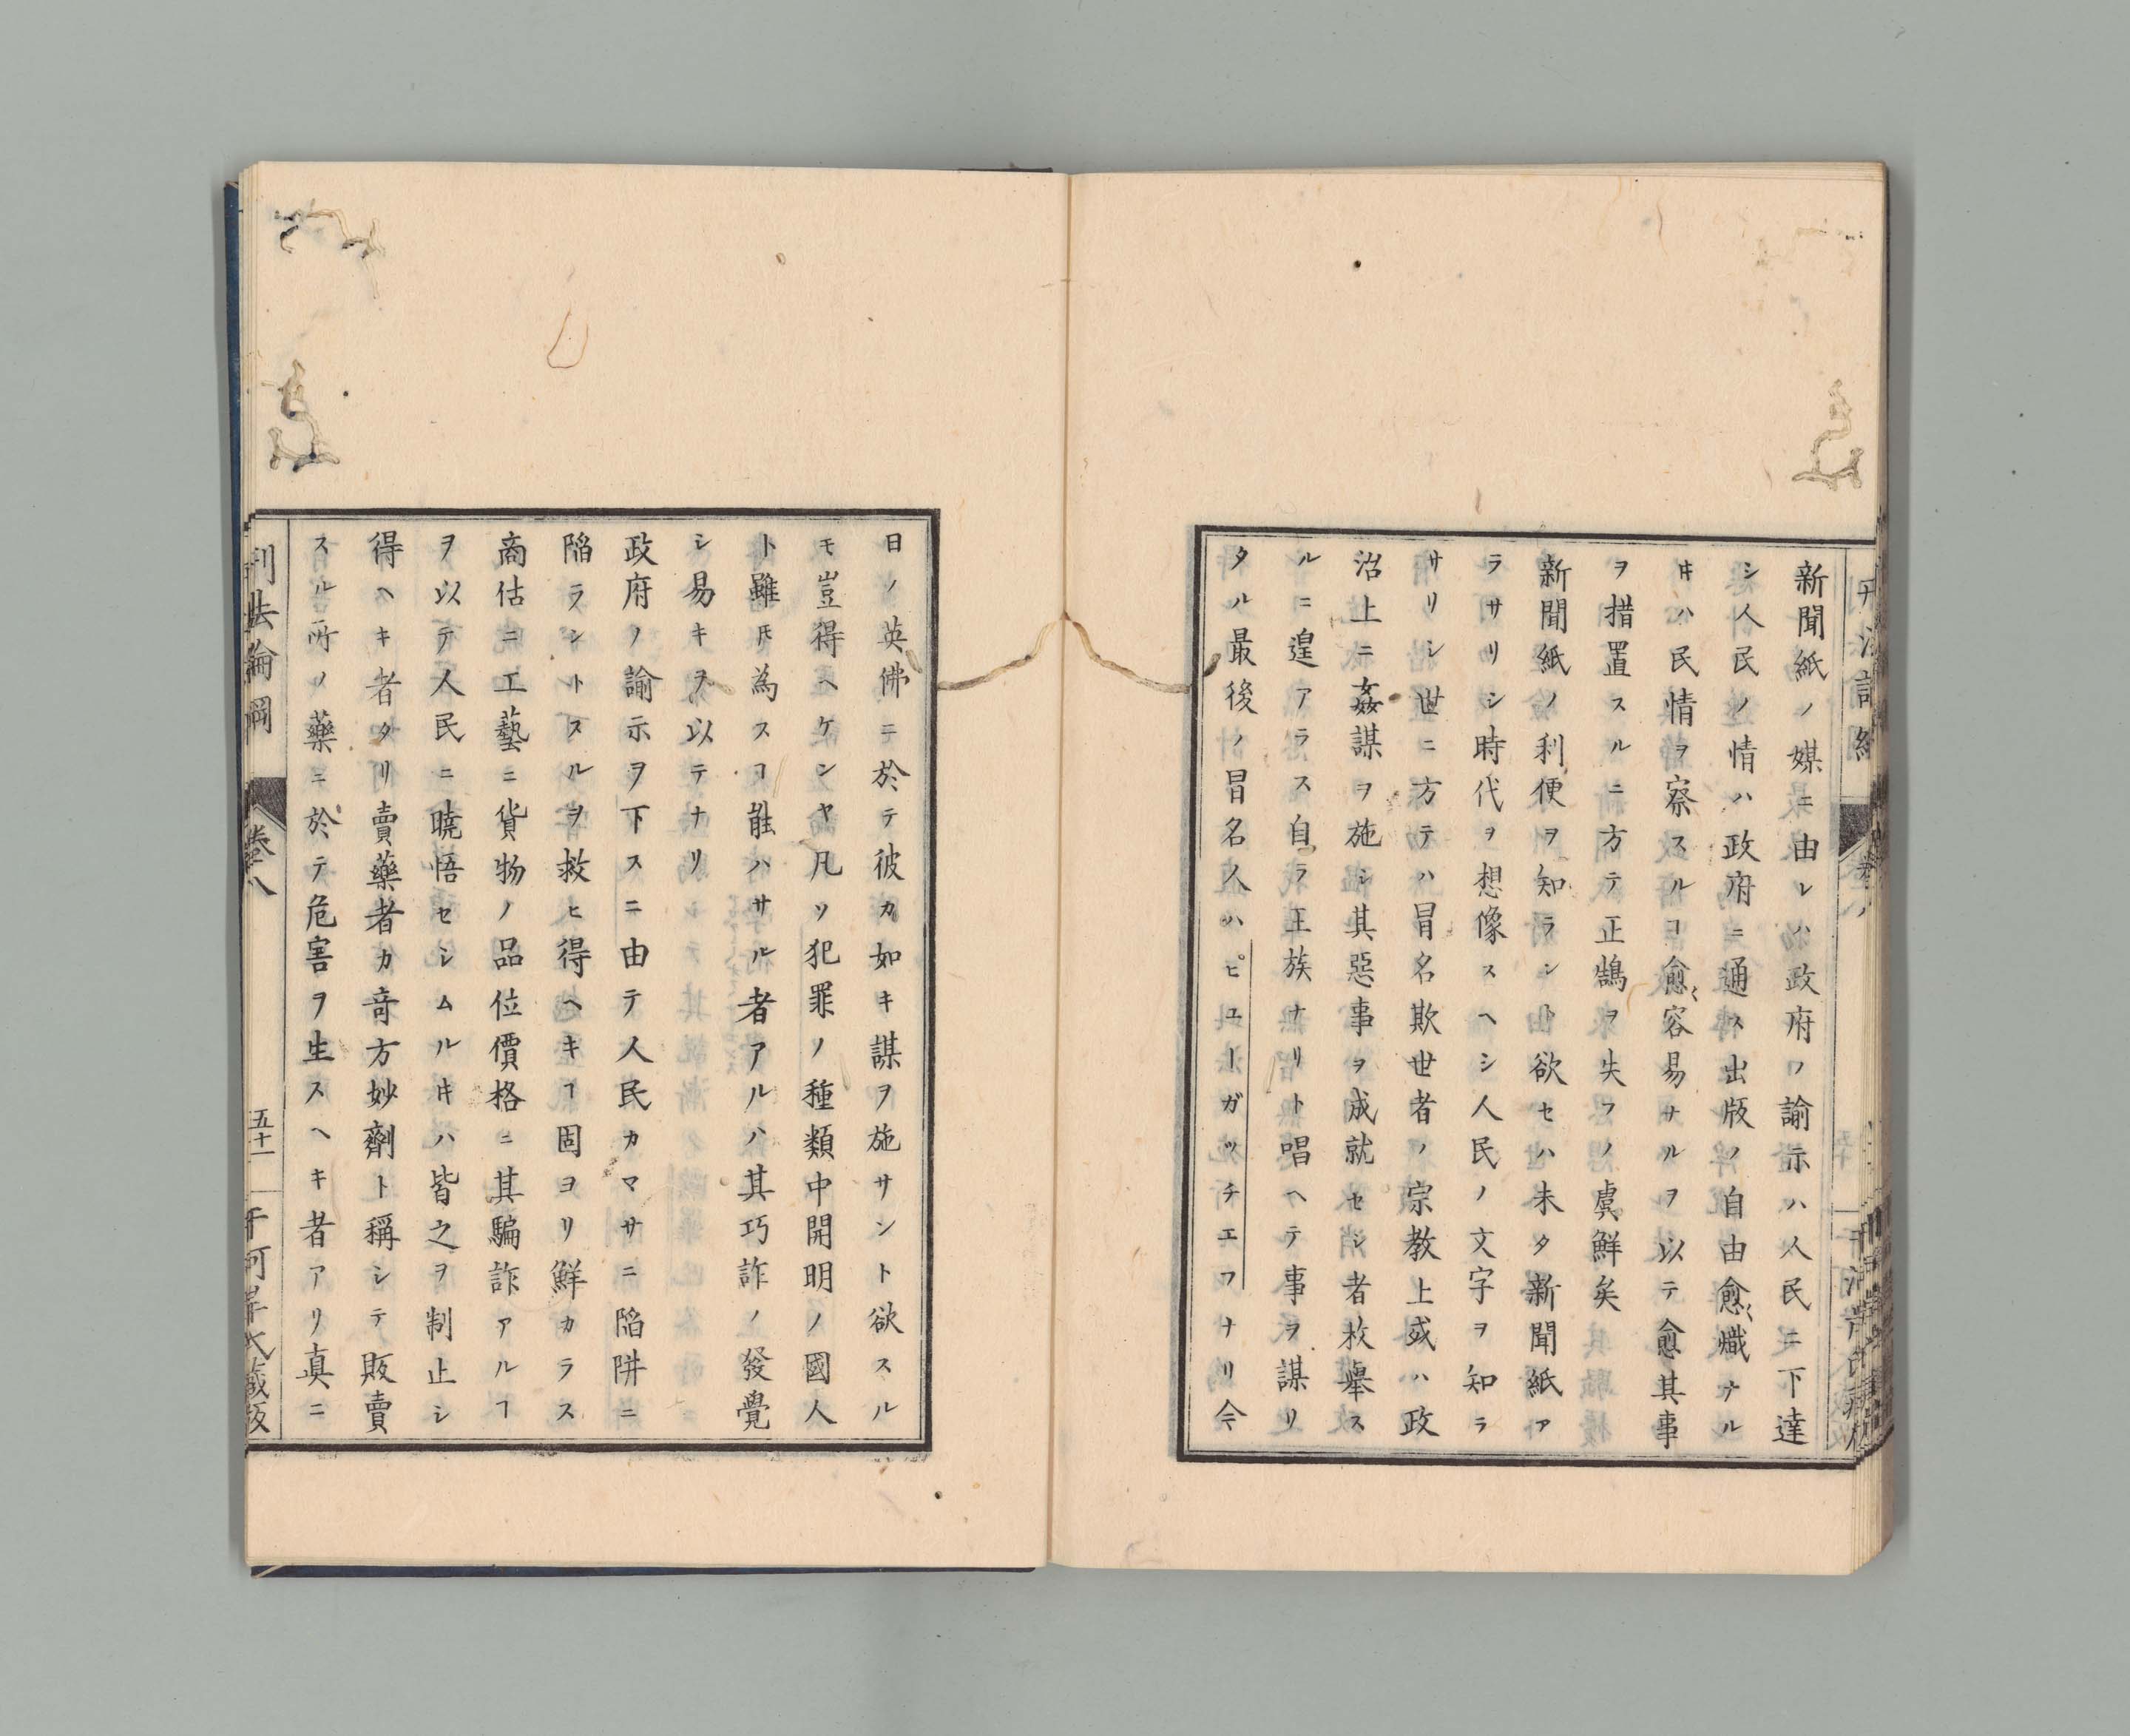 新聞紙ノ媒ニ由レハ政府ノ諭示ハ人民ニ下達
シ人民ノ情ハ政府ニ通ス出版ノ自由愈〻熾ナル
𪜈ハ民情ヲ察スルヿ愈〻容易サルヲ以テ愈其事
ヲ措置スルニ方テ正鵠ヲ失フノ虞鮮矣
新聞紙ノ利便ヲ知ラント欲セハ未タ新聞紙ア
ラサリシ時代ヲ想像スヘシ人民ノ文字ヲ知ラ
サリシ世ニ方テハ冒名欺世者ノ宗教上或ハ政
治上ニ姦謀ヲ施シ其惡事ヲ成就セシ者枚擧ス
ルニ遑アラス自ラ王族ナリト唱ヘテ事ヲ謀リ
タル最後ノ冒名人ハピユーガッチエフナリ今
日ノ英佛ニ於テ彼カ如キ謀ヲ施サント欲スル
モ豈得ヘケンヤ凡ソ犯罪ノ種類中開明ノ國人
ト雖𪜈為スヿ能ハサル者アルハ其巧詐ノ發覺
シ易キヲ以テナリ
政府ノ諭示ヲ下スニ由テ人民カマサニ陷阱ニ
陷ラントスルヲ救ヒ得ヘキヿ固ヨリ鮮カラス
商估ニ工藝ニ貨物ノ品位價格ニ其騙詐アルヿ
ヲ以テ人民ニ曉悟セシムルキハ皆之ヲ制止シ
得ヘキ者タリ賣藥者カ奇方妙劑ト稱シテ販賣
スル所ノ藥ニ於テ危害ヲ生スヘキ者アリ真ニ
刑法論綱
卷八
五十一